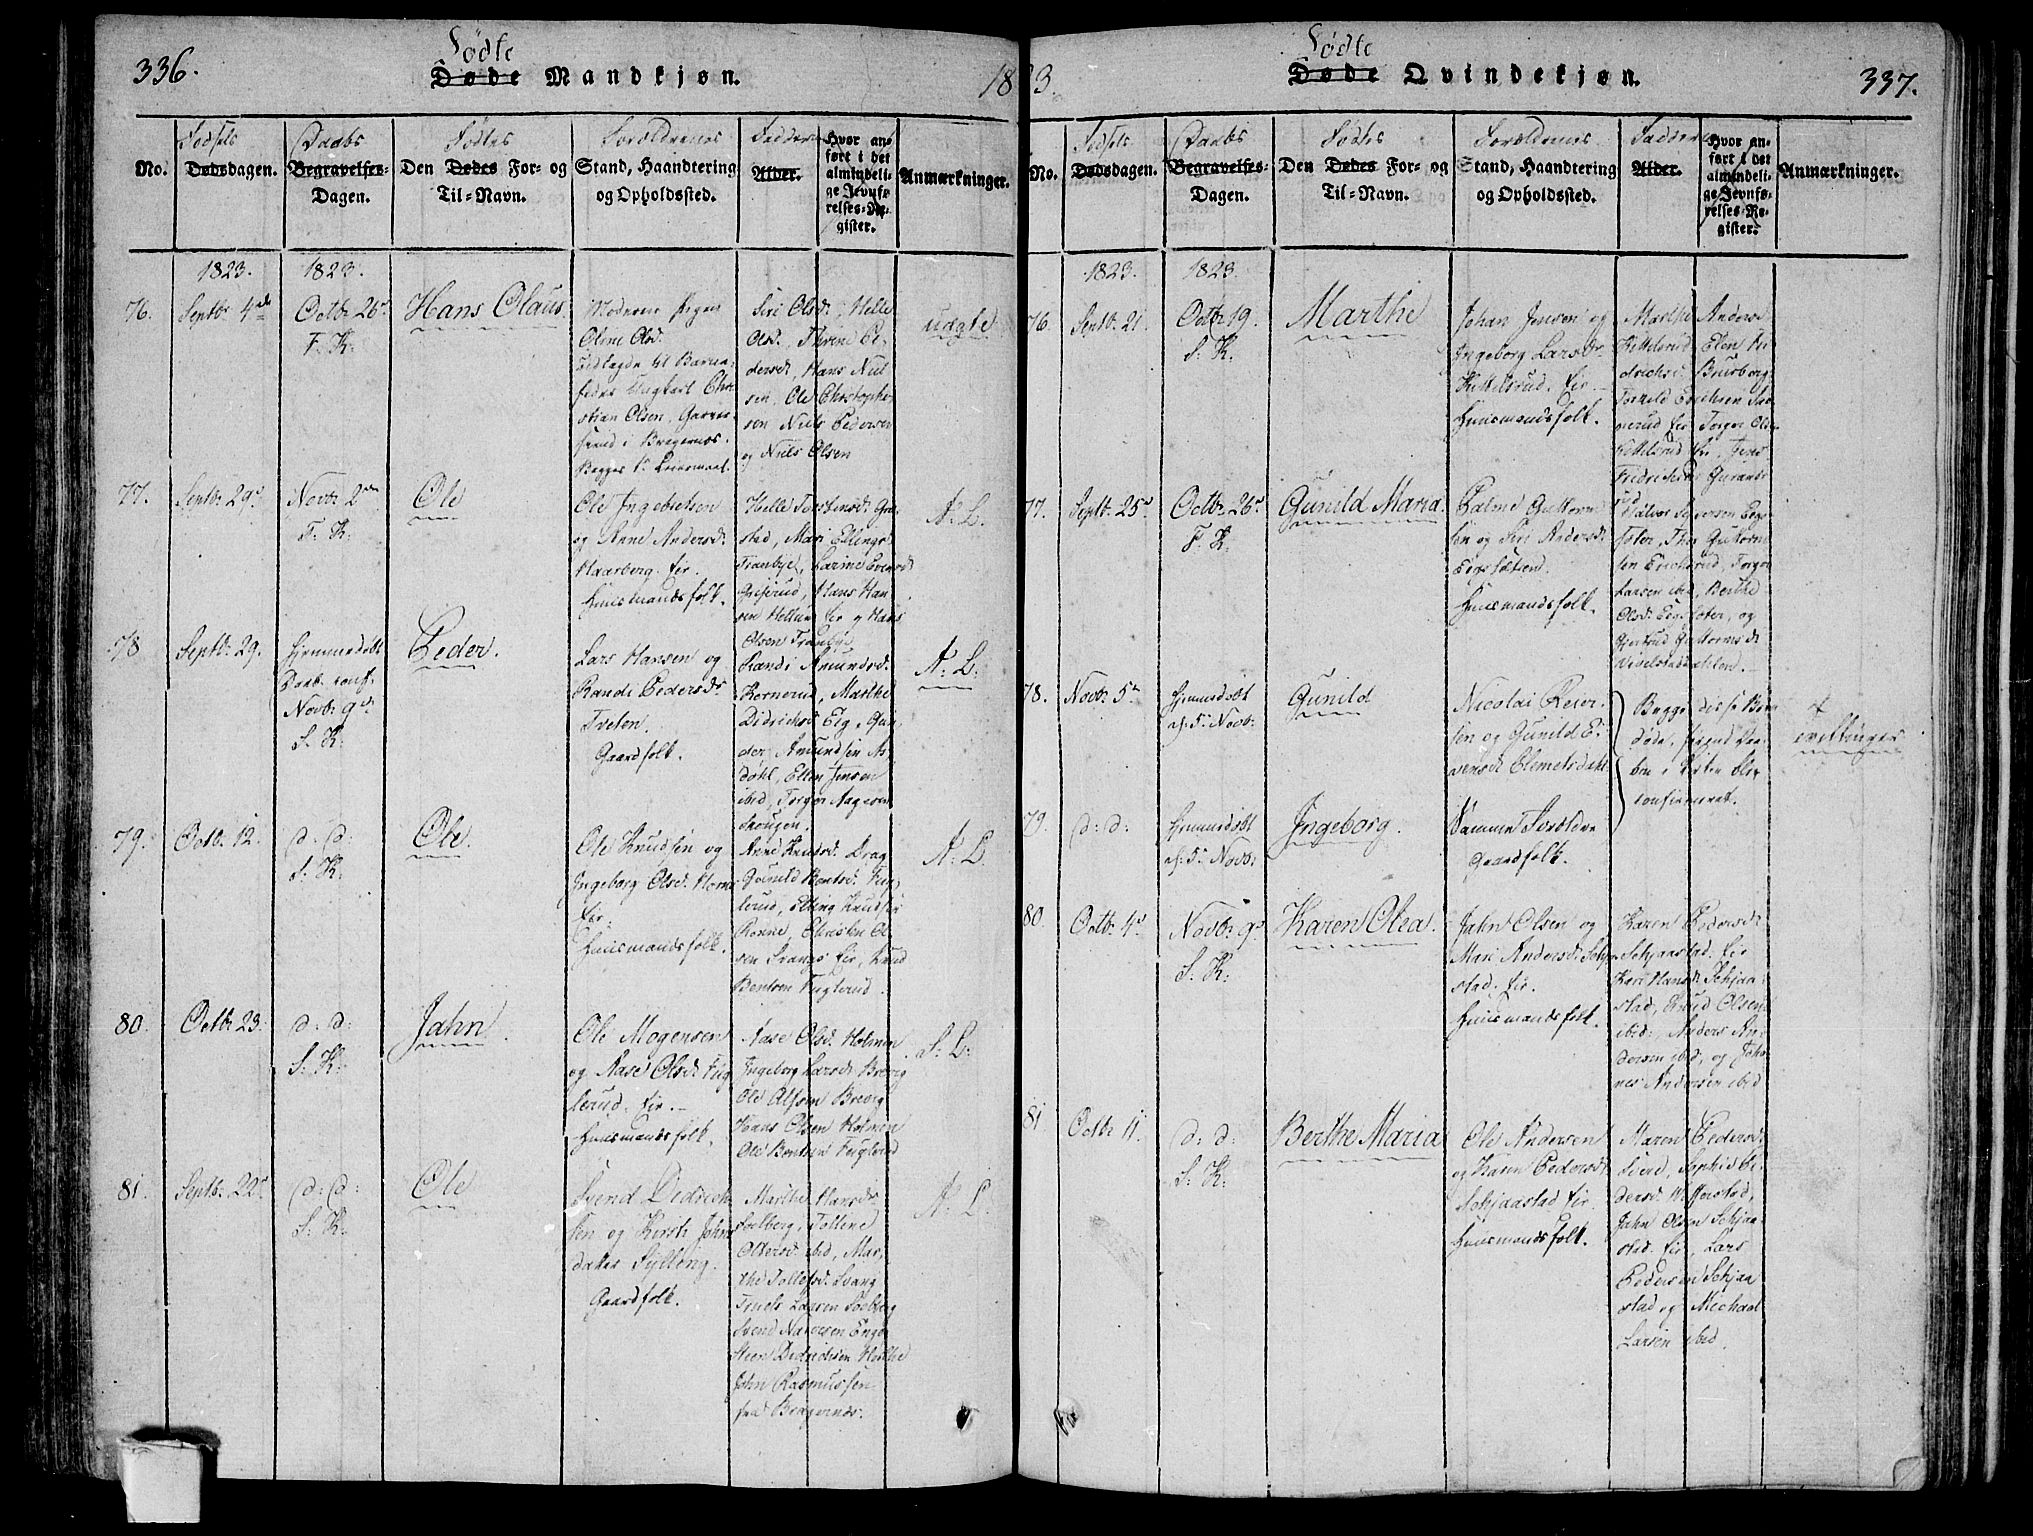 336.
Fødte
Døde Mandkjøn.
18
No.
Fødsels
Dødsdagen.
Daabs
Begravelses-
Dagen.
Fødtes
Den Dødes For- og
Til-Navn.
Forældrenes
Stand, Haandtering
og Opholdssted.
Faddere
Alder.
Hvor an-
ført i det
almindeli-
ge Jevnfø-
relses-Re-
gister.
Anmærkninger.
1823.
1823.
76.
Septbr 4de
Octbr 26de
F. K.
Hans Olaus
Moderen Pigen
Oline Olsd.
udlagde til Barne-
fader Ungkarl Chri-
stian Olsen, Garver-
svend i Bragernæs.
Begges 1ste Leiermaal.
Siri Olsd., Helle
Olsd., Thrine Pe-
dersd., Hans Niel-
sen, Ole Christophe-
sen, Niels Pedersen
og Niels Olsen
udgte.
77.
Septbr 29de
Novbr 2den
F. K.
Ole
Ole Ingebretsen
og Anne Andersd:
Haarberg Eie.
Huusmandsfolk.
Helle Torstensd:
stad, Mari Ellings
Tranbye, Karine Evensd
Griserud, Hans Han-
sen Hellum Eie og Hans
Olsen Tranbye
A. L.
78
Septbr 29.
Hjemmedøbt
Daab. conf.
Novbr 9de
S. K.
Peder.
Lars Hansen og
Randi Pedersdr
Tveten.
Gaardfolk.
Randi Amundsd.
Kornerud, Marthe
Didrichsd Eig, Gun-
der Amundsen As-
døhl, Ellen Jensen
ibid, Torger Aagesen
Skougen.
A. L.
79.
Octbr 12.
d: d:
S. K.
Ole.
Ole Knudsen og
Ingeborg Olsd. Horne
Eie.
Huusmandsfolk.
Anne Knudsd. Drag
Gunild Bentsd. Fug-
lerud, Elling Knudsen
Rønne, Christen Ol-
sen Svangs Eie, Knud
Bentsen Fuglerud.
A. L.
80.
Octbr 23.
d: d:
S. K.
Jahn.
Ole Mogensen
og Aase Olsd: Fug-
lerud. Eie.
Huusmandsfolk.
Aase Olsd. Holmen
Ingeborg Larsd. Brevig
Ole Alfsen Brevig
Hans Olsen Holmen
Ole Bentsen Fuglerud
S. L.
81.
Septbr 22de
d: d:
S. K.
Ole
Svend Didrich-
sen og Kirsti Johns-
datter Sylling.
Gaardfolk.
Marthe Hansdr
Solberg, Tolline
Olversd ibid, Mar-
the Tollefsd. Svang
Truels Larsen Solberg
Svend Narvesen Enge
Steen Didrichsen Horthe
John Rasmussen
fra Bragernæs.
A. L.
3.
Fødte
Døde Qvindekjøn.
337.
No.
Fødsels
Dødsdagen.
Daabs
Begravelses-
Dagen.
Fødtes
Den Dødes For- og
Til-Navn.
Forældrenes
Stand, Haandtering
og Opholdssted.
Faddere
Alder.
Hvor an-
ført i det
almindeli-
ge Jevnfø-
relses-Re-
gister.
Anmærkninger.
1823.
1823.
76.
Septbr 21.
Octbr 19.
S. K.
Marthe
Johan Jensen og
Ingeborg Larsdr.
Kittelsrud. Eie
Huusmandsfolk.
Marthe Andersd
Kittelsrud, Elen Fri-
drichsd. Buerborg
Torkild Erichsen
Eie, Torger Olsen
Kittelsrud Eie,
Fredrichsen
77.
Septbr 25de
Octbr 26de
F. K.
Gunild Maria.
Palme Guttorm-
sen og Siri Andersd.
Eegsæteren.
Huusmandsfolk.
Halvor Iversen Eeg-
sæter, Thor Guttorm-
sen Erichsrud, Torger
Larsen ibid, Berthe
Olsd. Eegsæter, og
Gjertrud Guttormsd.
78.
Novbr 5te
Hjemmedøbt
d: 5te Novbr.
Gunild
Nicolai Reier-
sen og Gunild E-
vensd. Clemetsdahl
Begge disse Børn
døde, førend Daa-
ben i Kirken blev
confirmeret.
tvillinger.
79.
d: d:
Hjemmedøbt
d: 5te Novbr:
Ingeborg.
Samme Forældre
Gaardfolk.
80.
Octbr 4de
Novbr 9de
S. K.
Karen Olea.
Jahn Olsen og
Mari Andersd: Schjaa-
stad. Eie.
Huusmandsfolk.
Karen Pedersd:
Schjaastad. Eie
Kari Hansd: Schjaa-
stad, Knud Olsen
ibid, Anders An-
dersen ibid, og Johan-
nes Andersen ibid
81
Octbr 11.
d: d:
S. K.
Berthe Maria
Ole Andersen
og Karen Pedersd:
Schjaastad Eie.
Huusmandsfolk.
Maren Pedersd.
Fierd, Sophie Pe-
dersd.
Jahn Olsen Schjaa-
stad. Eie, Lars
Pedersen Schjaa-
stad og Michael
Larsen ibid.